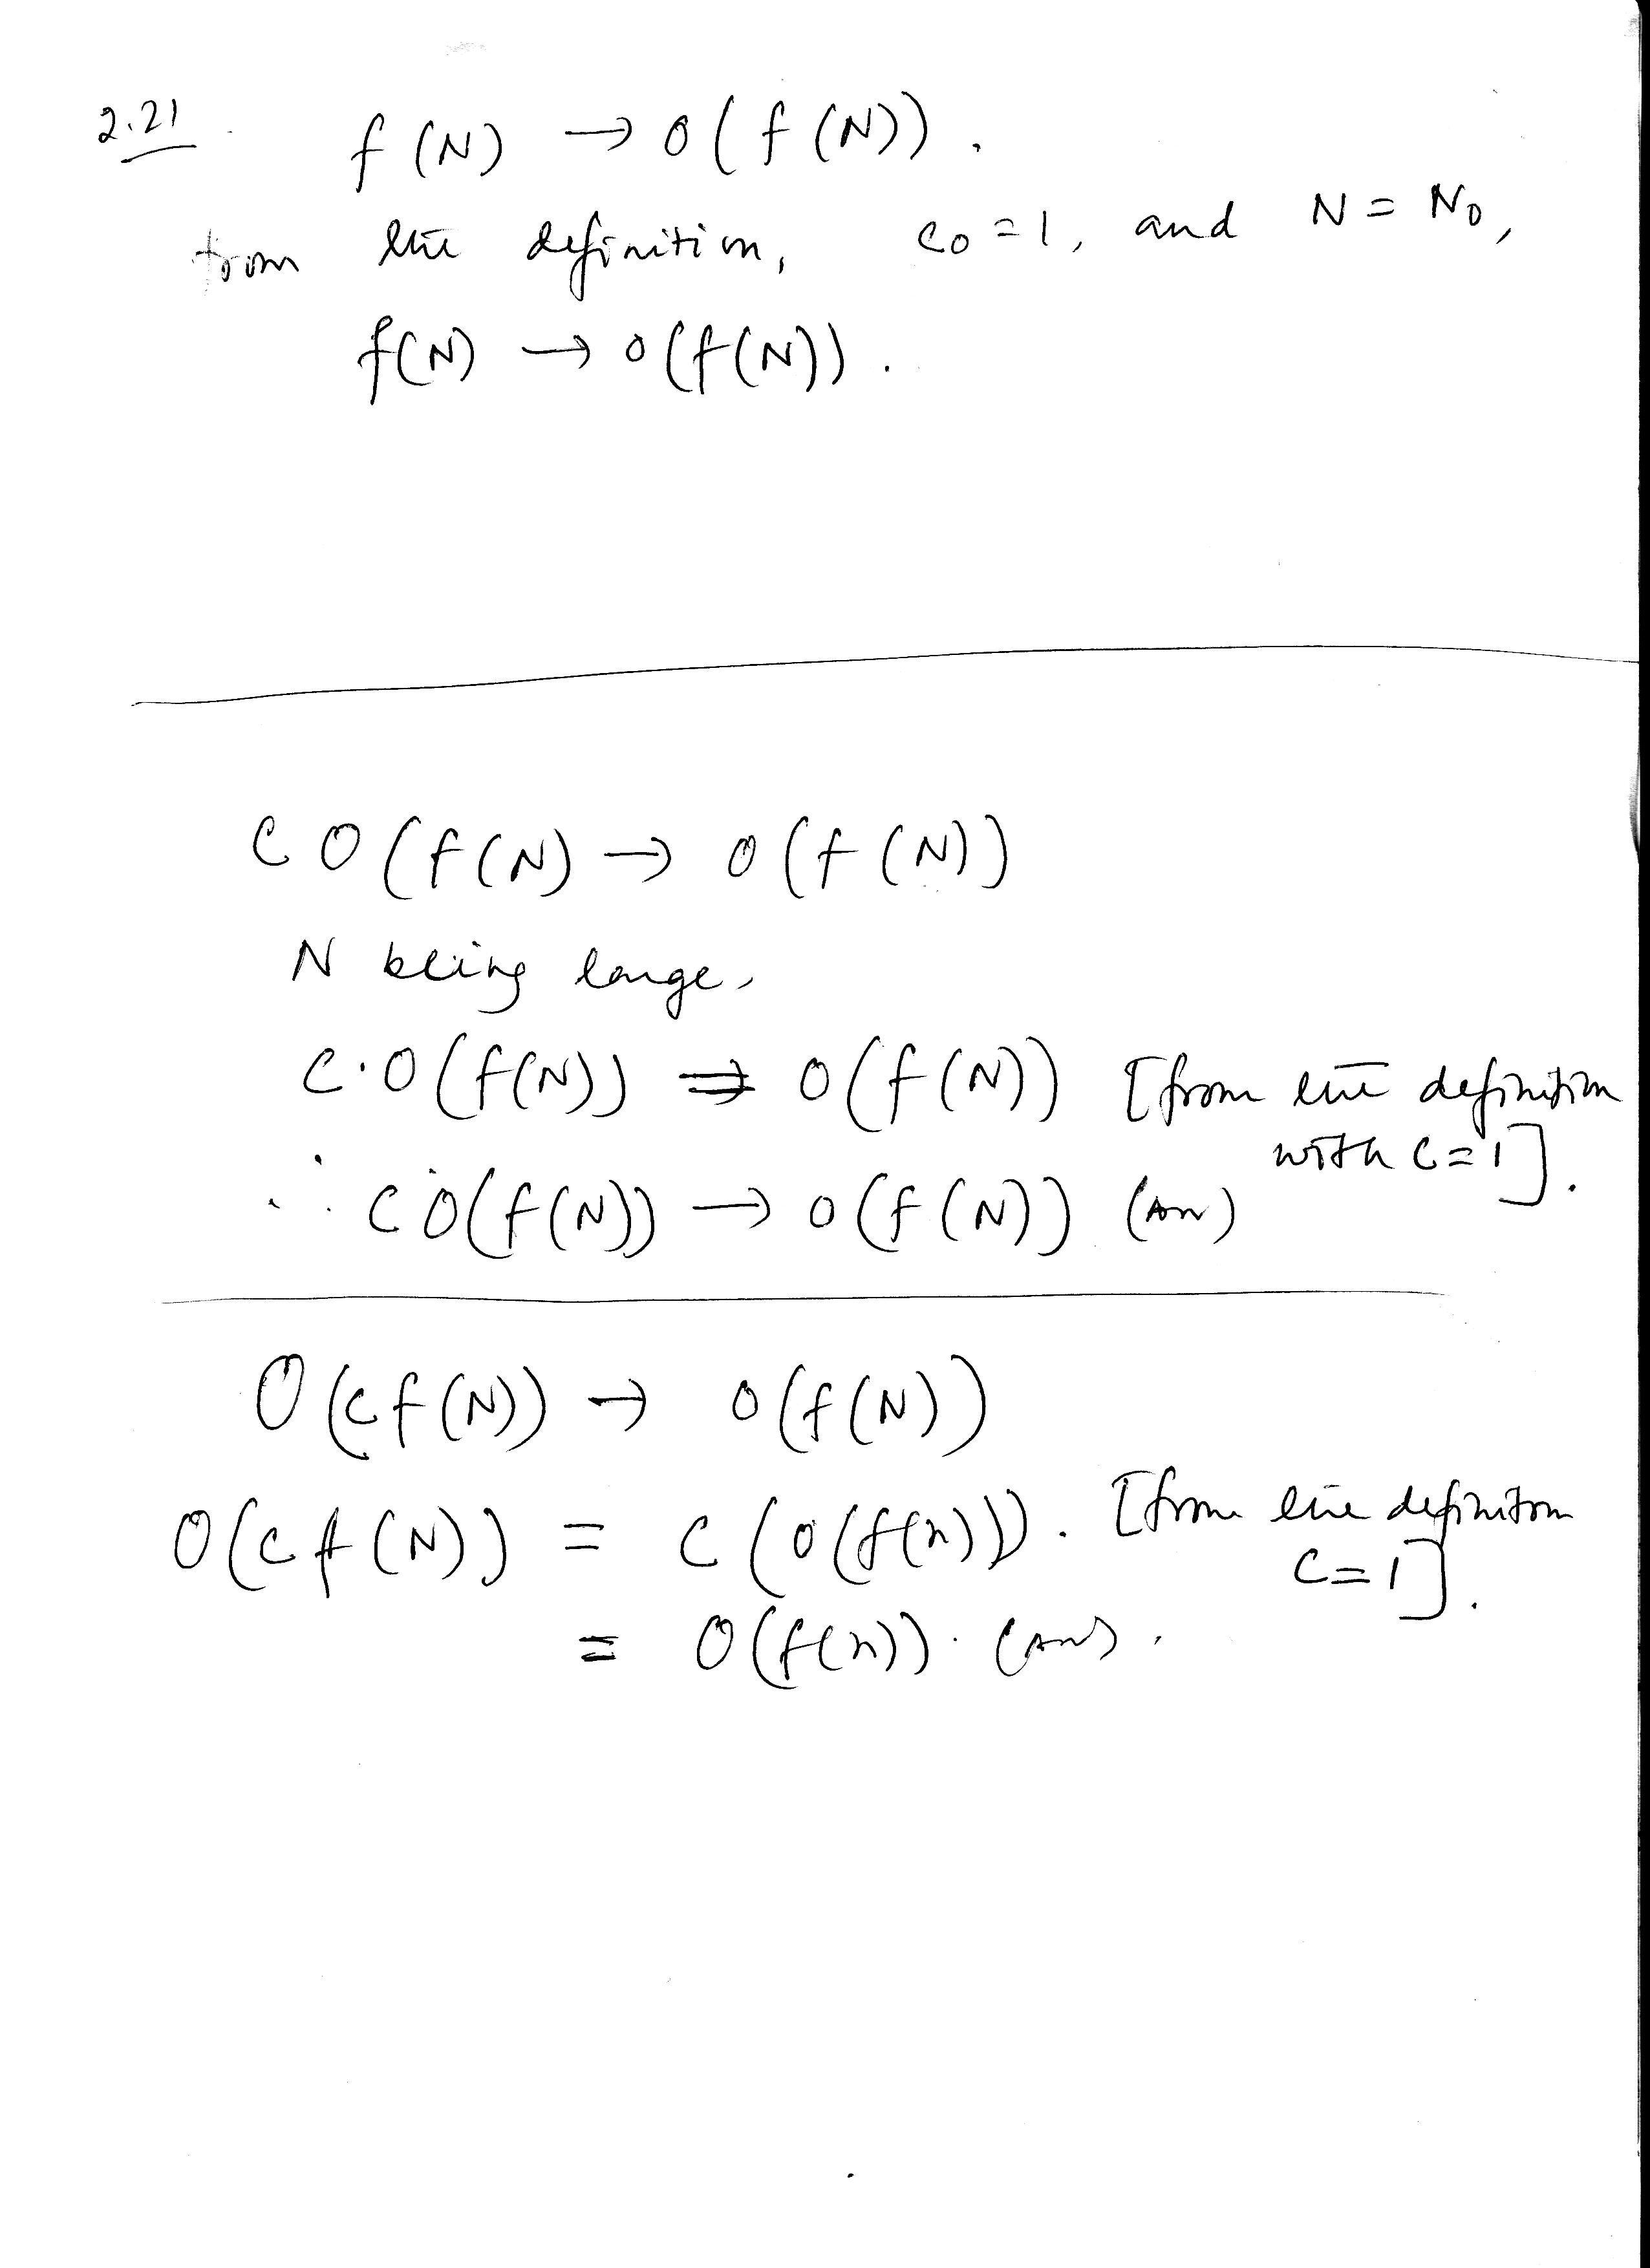 2.21
f(N) → O(f(N)).
from the definition, c₀ = 1, and N = N₀,
f(N) → O(f(N)).
C O(f(N) → O(f(N))
N being large,
C·O(f(N)) → O(f(N)) [from the definition
with C=1].
∴ C O(f(N)) → O(f(N)) (Ans)
O(cf(N)) → O(f(N))
O(cf(N)) = C(O(f(n))). [from the definition
C=1].
= O(f(n)). (Ans).